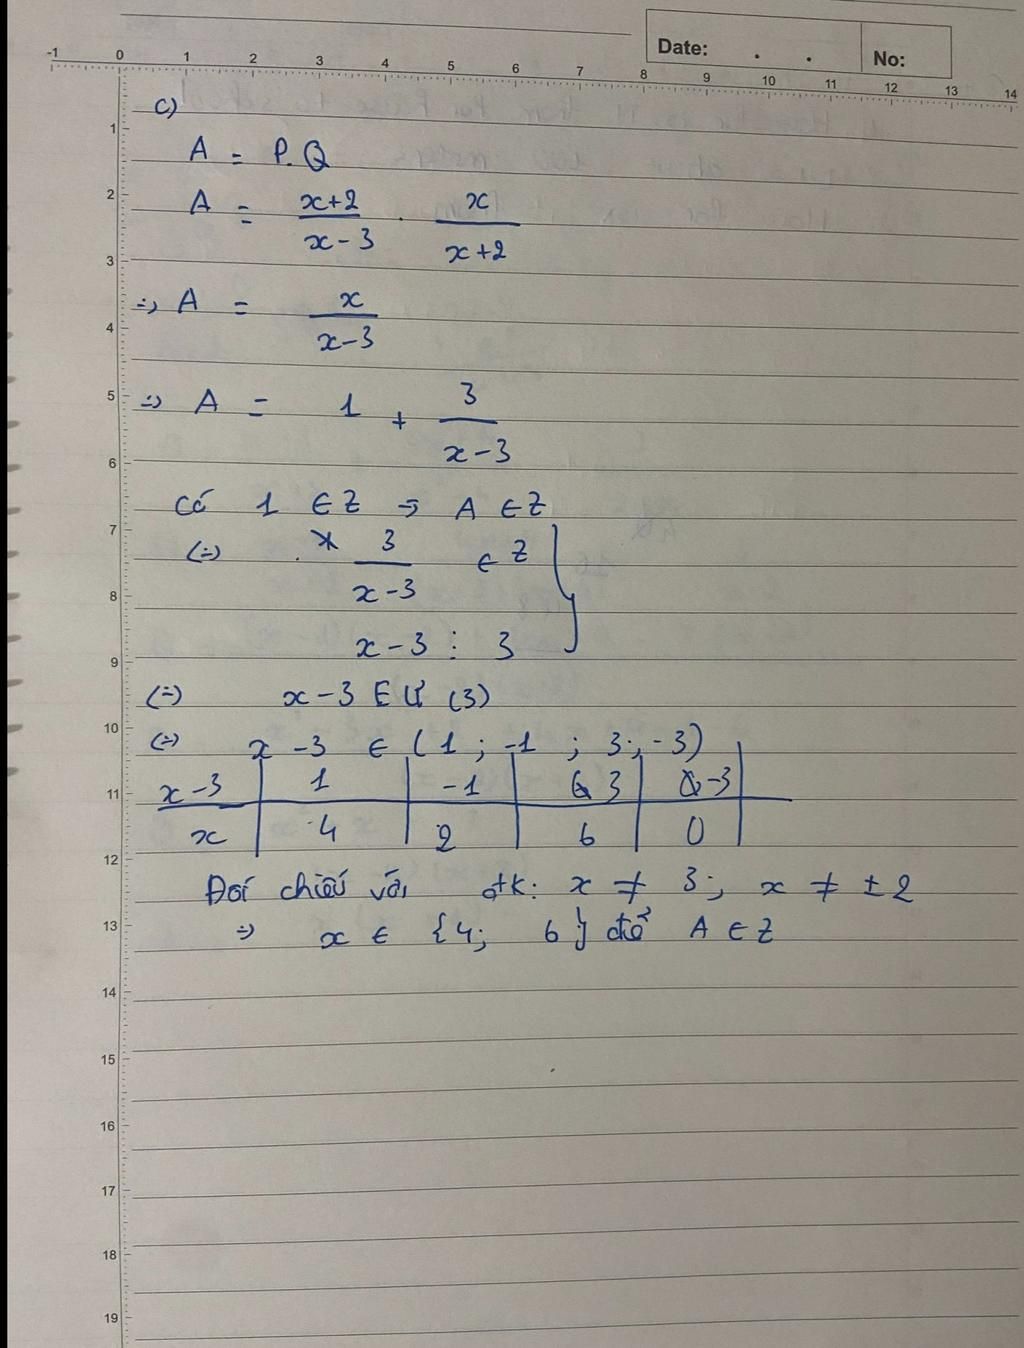 Date: . . No:
-1 0 1 2 3 4 5 6 7 8 9 10 11 12 13 14
c)
A = P.Q
A = \frac{x+2}{x-3} . \frac{x}{x+2}
=> A = \frac{x}{x-3}
=> A = 1 + \frac{3}{x-3}
Có 1 ∈ Z => A ∈ Z
(=) * \frac{3}{x-3} ∈ Z }
x-3 ⋮ 3
(=) x-3 ∈ Ư (3)
(=) x -3 ∈ (1 ; -1 ; 3 ; -3)
x-3 | 1 | -1 | 3 | -3
x | 4 | 2 | 6 | 0
Đối chiếu với đk: x ≠ 3; x ≠ ±2
=> x ∈ {4; 6} để A ∈ Z
1
2
3
4
5
6
7
8
9
10
11
12
13
14
15
16
17
18
19